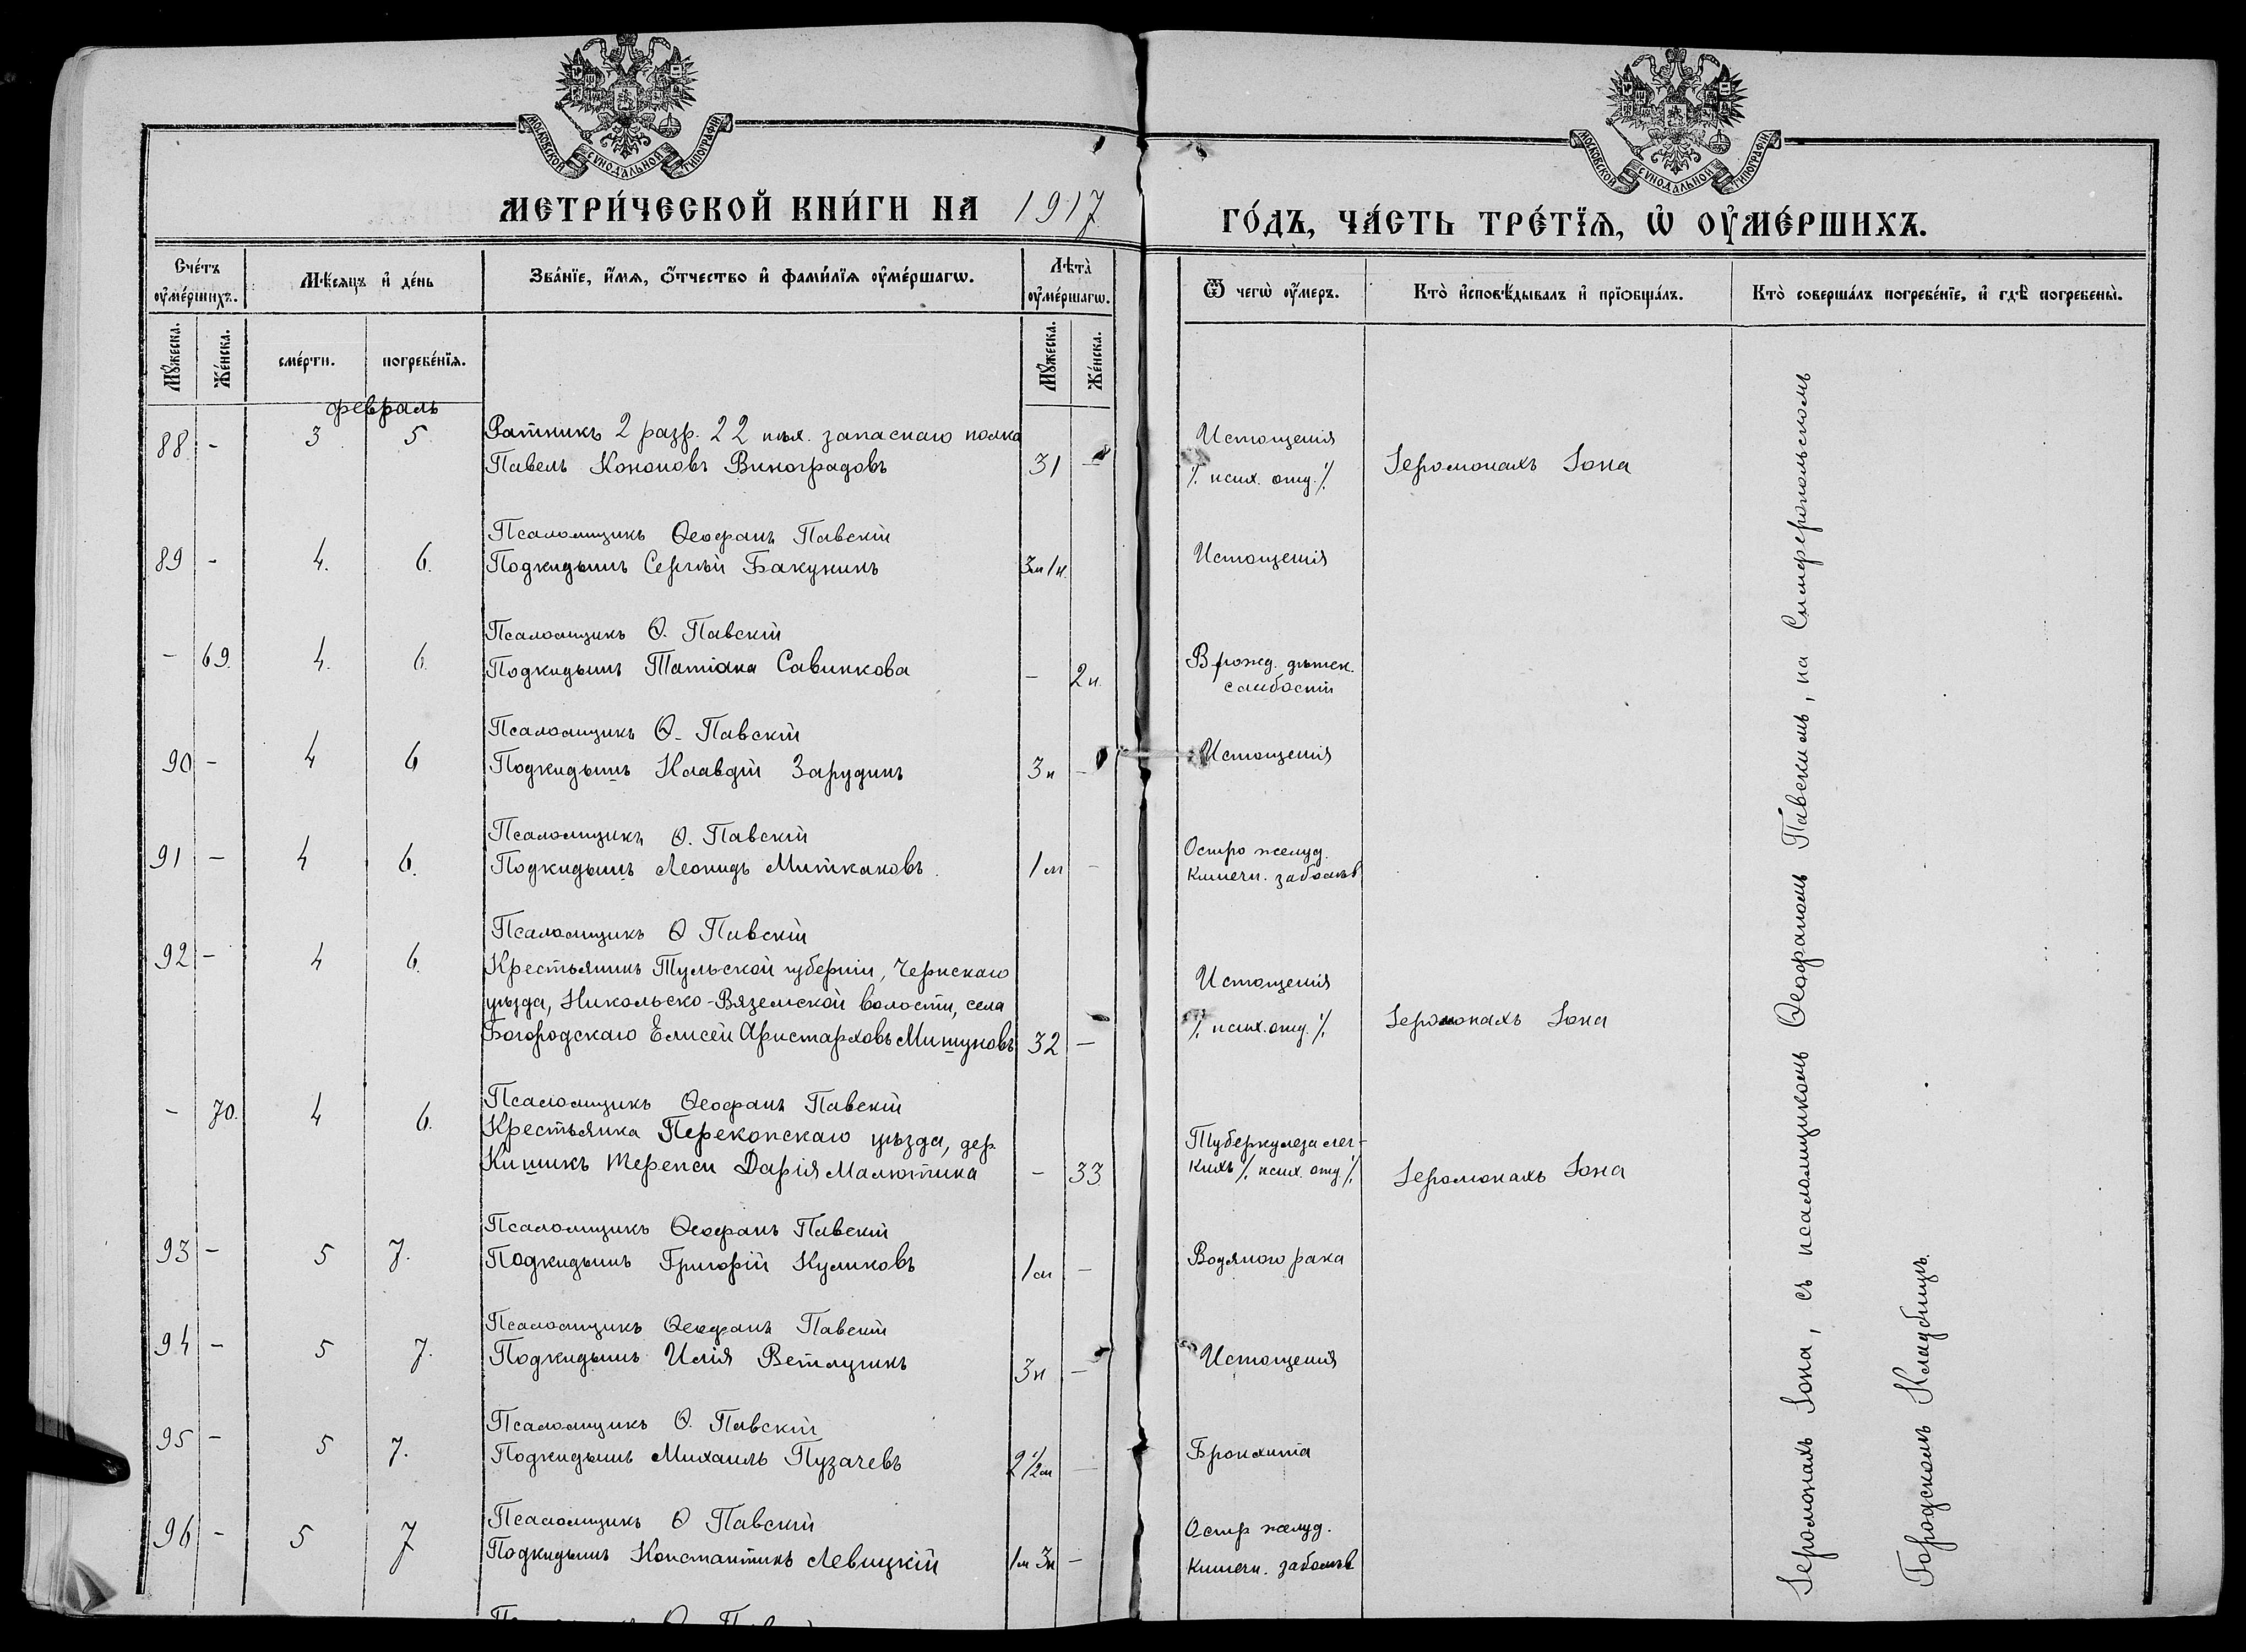 МОСКОВСКОЙ СѴНОДАЛЬНОЙ ТИПОГРАФІИ
МОСКОВСКОЙ СѴНОДАЛЬНОЙ ТИПОГРАФІИ
МЕТРИ́ЧЕСКОЙ КНИ́ГИ НА 1917
ГО́ДЪ, ЧА́СТЬ ТРЕ́ТЇѦ, Ѡ҆ ОУ҆МЕ́РШИХЪ.
Сче́тъ оу҆ме́ршихъ.
Мѣ́сяцъ и҆ де́нь
Зва́нїе, и҆́мѧ, ѻ҆́тчество и҆ фами́лїѧ оу҆ме́ршагѡ.
Лѣта̀ оу҆ме́ршагѡ.
Ѿ чегѡ̀ оу҆́меръ.
Кто̀ и҆сповѣ́дывалъ и҆ прїѻбща́лъ.
Кто̀ соверша́лъ погребе́нїе, и҆ гдѣ̀ погребены̀.
Мꙋ́жеска.
Же́нска.
сме́рти.
погребе́нїѧ.
Мꙋ́жеска.
Же́нска.
февраль
88 - 3 5 Ратникъ 2 разр. 22 пѣх. запаснаго полка
Павелъ Кононовъ Виноградовъ 31 -
Истощенія
٪ псих. отд. ٪ Іеромонахъ Іона
Псаломщикъ Ѳеофанъ Павскій
89 - 4. 6. Подкидышъ Сергѣй Бакунинъ 3м 1н.
Истощенія
Псаломщикъ Ѳ. Павскій
- 69. 4. 6. Подкидышъ Татіана Савинкова - 2н.
Врожд. дѣтск.
слабости
Псаломщикъ Ѳ. Павскій
90 - 4 6 Подкидышъ Клавдій Зарудинъ 3н -
Истощенія
Псаломщикъ Ѳ. Павскій
91 - 4 6. Подкидышъ Леонидъ Миткановъ. 1м -
Остро желуд.
кишечн. заболѣв
Псаломщикъ Ѳ Павскій
92 - 4 6. Крестьянинъ Тульской губерніи, Чернскаго
уѣзда, Никольско-Вяземской волости, села
Богородскаго Елисей Аристарховъ Мишуновъ 32 -
Истощенія
٪ псих. отд. ٪ Іеромонахъ Іона
Псаломщикъ Ѳеофанъ Павскій
- 70. 4 6. Крестьянка Перекопскаго уѣзда, дер.
Кишикъ Терекси Дарія Малютина - 33
Туберкулеза лег-
кихъ ٪ псих. отд. ٪ Іеромонахъ Іона
Псаломщикъ Ѳеофанъ Павскій
93 - 5 7. Подкидышъ Григорій Куликовъ 1м -
Водяного рака
Псаломщикъ Ѳеофанъ Павскій
94 - 5 7. Подкидышъ Илія Ветлугинъ 3н -
Истощенія
Псаломщикъ Ѳ. Павскій
95 - 5 7. Подкидышъ Михаилъ Пузачевъ 2 1/2м -
Бронхита
Псаломщикъ Ѳ Павскій
96 - 5 7 Подкидышъ Константинъ Левицкій 1м 3н -
Остр желуд.
кишечн. заболѣв
Іеромонахъ Іона, съ псаломщикомъ Ѳеофаномъ Павскимъ, на Симферопольскомъ
Городскомъ Кладбищѣ.